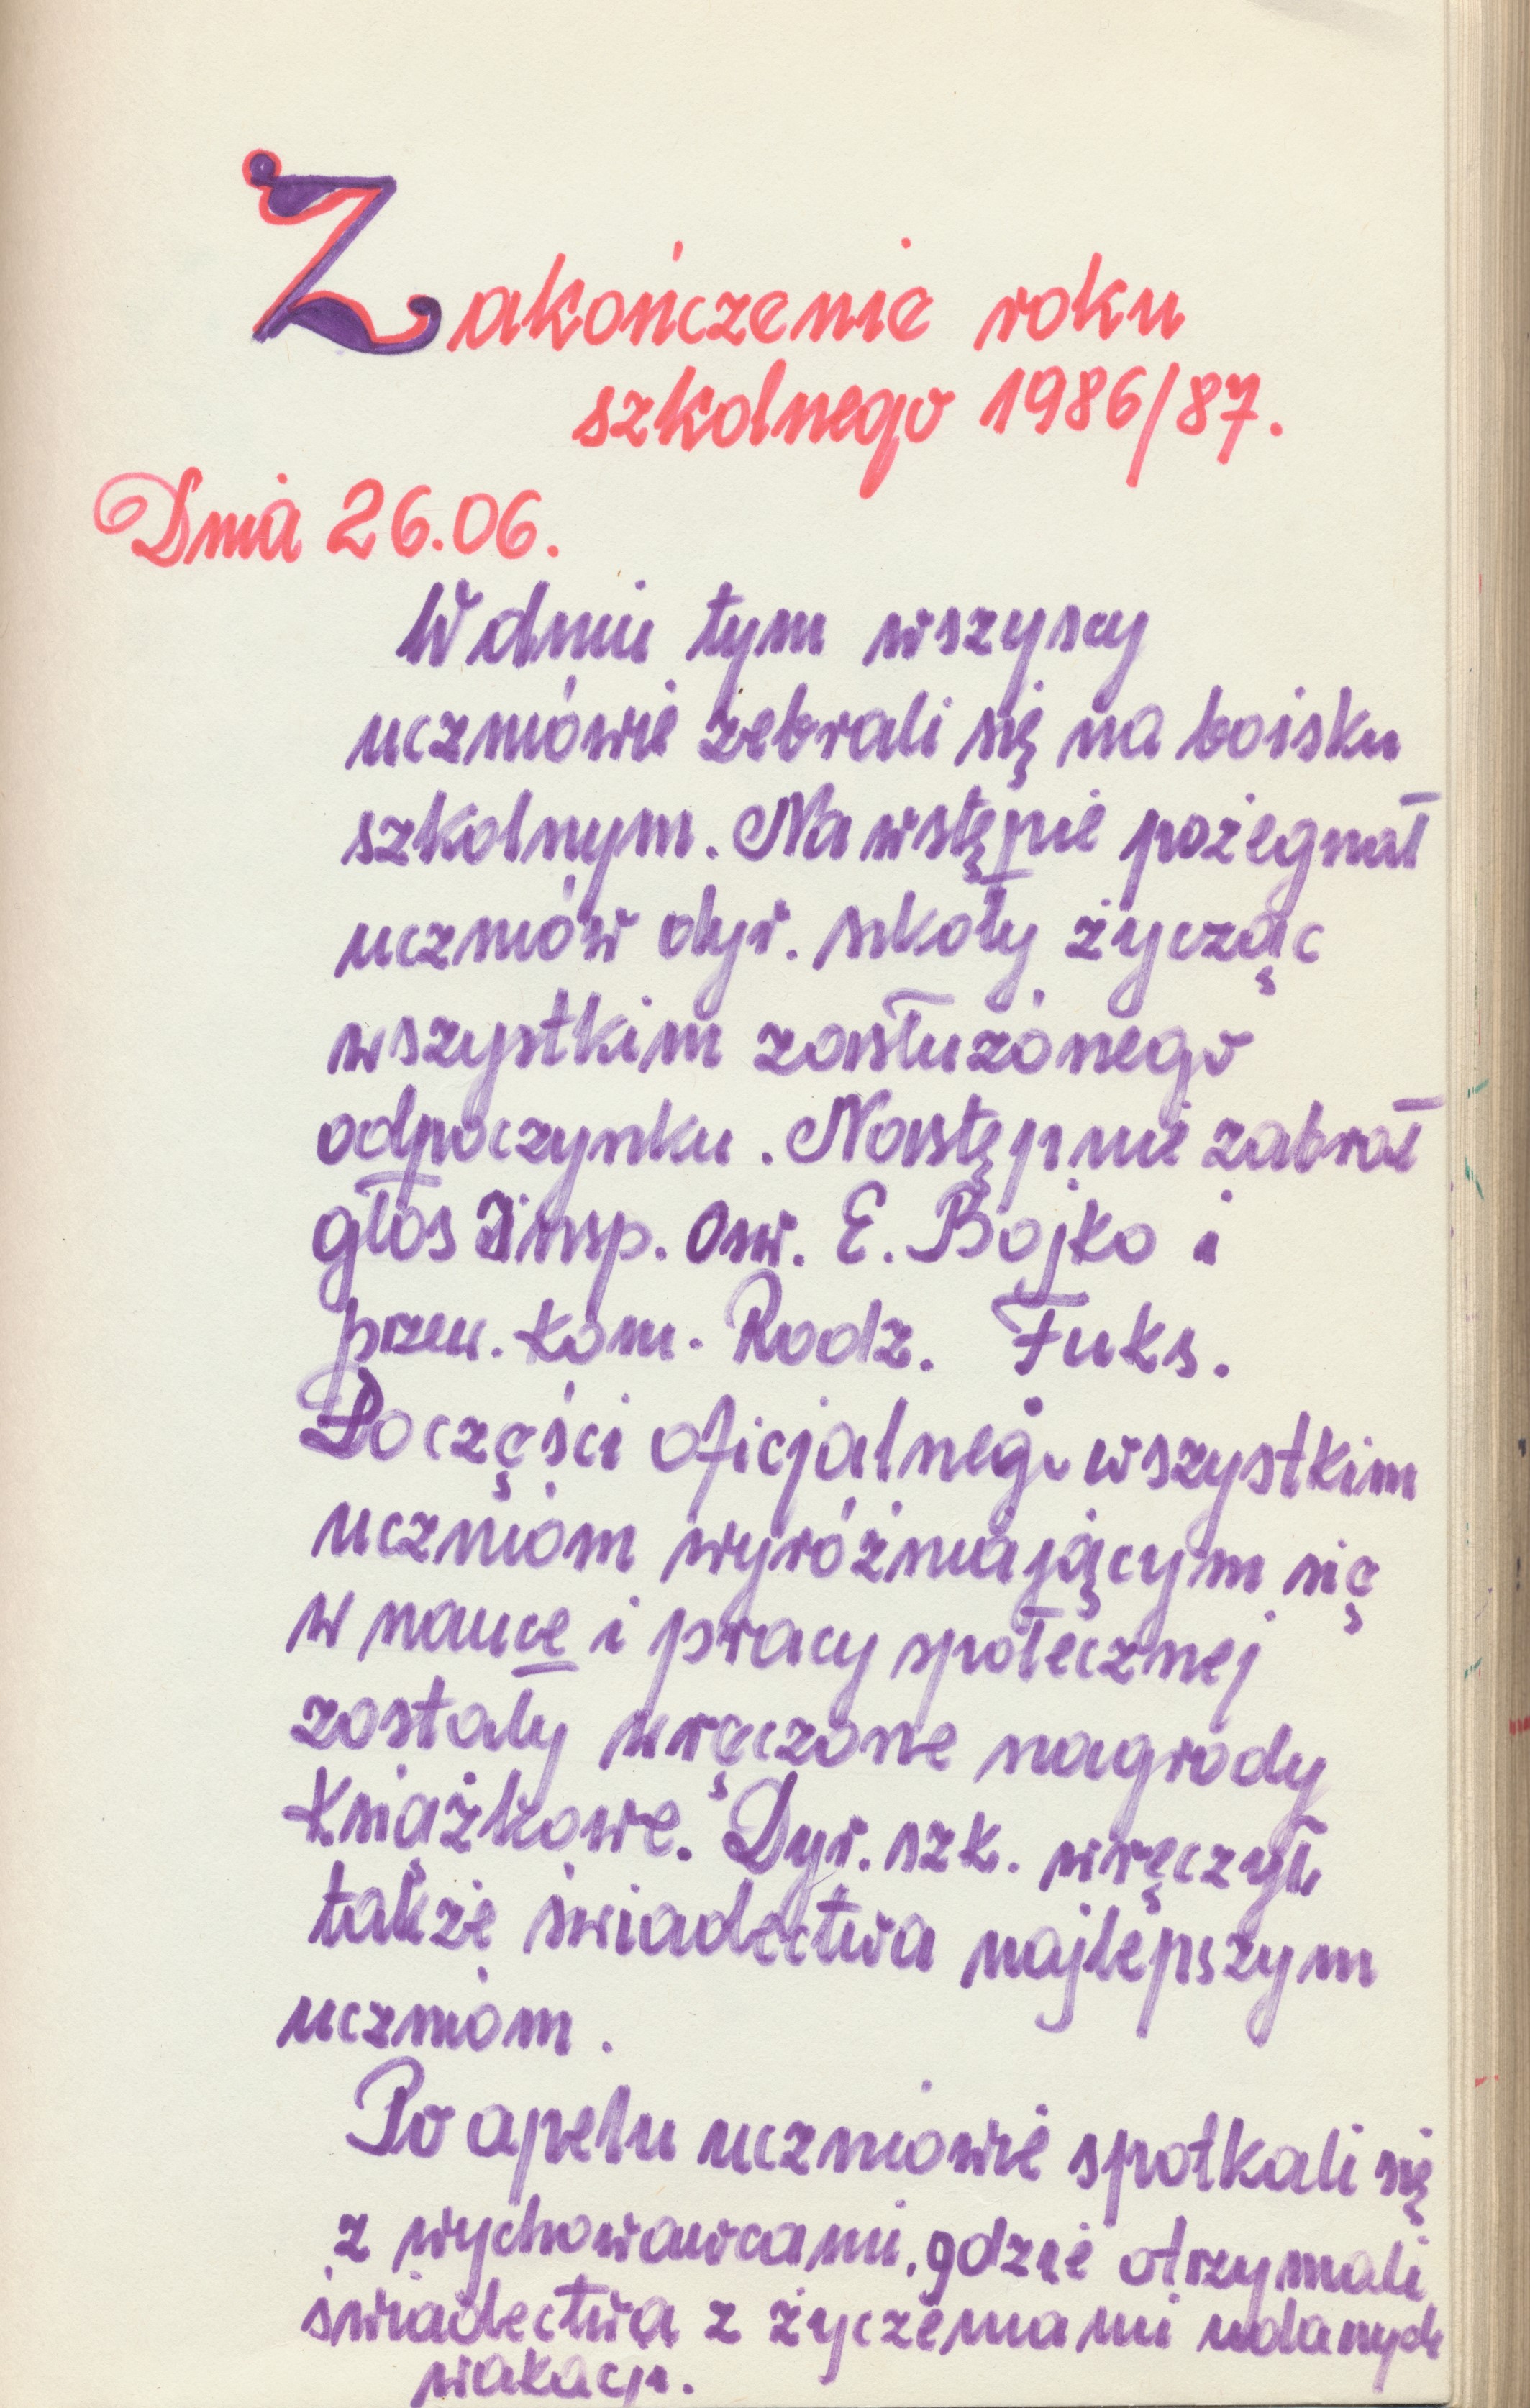 Zakończenie roku
szkolnego 1986/87.
Dnia 26.06.
W dniu tym wszyscy
uczniowie zebrali się na boisku
szkolnym. Na wstępie pożegnał
uczniów dyr. szkoły życząc
wszystkim zasłużonego
odpoczynku. Następnie zabrał
głos insp. Ośw. E. Bojko i
przew. Kom. Rodz. Fuks.
Po części oficjalnego wszystkim
uczniom wyróżniającym się
w nauce i pracy społecznej
zostały wręczone nagrody
książkowe. Dyr. szk. wręczył
także świadectwa najlepszym
uczniom.
Po apelu uczniowie spotkali się
z wychowawcami, gdzie otrzymali
świadectwa z życzeniami udanych
wakacji.